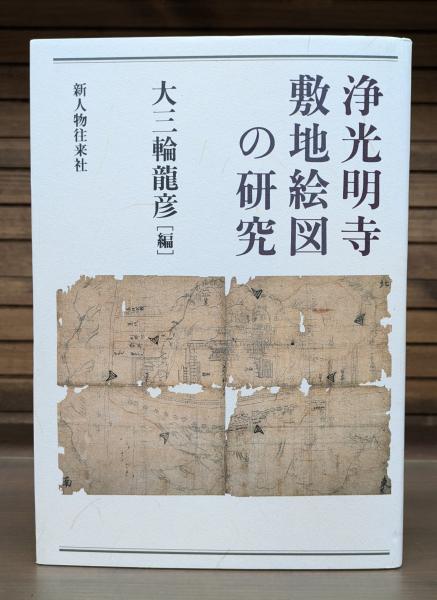 浄光明寺
敷地絵図
の研究
大三輪龍彦［編］
新人物往来社
北
南